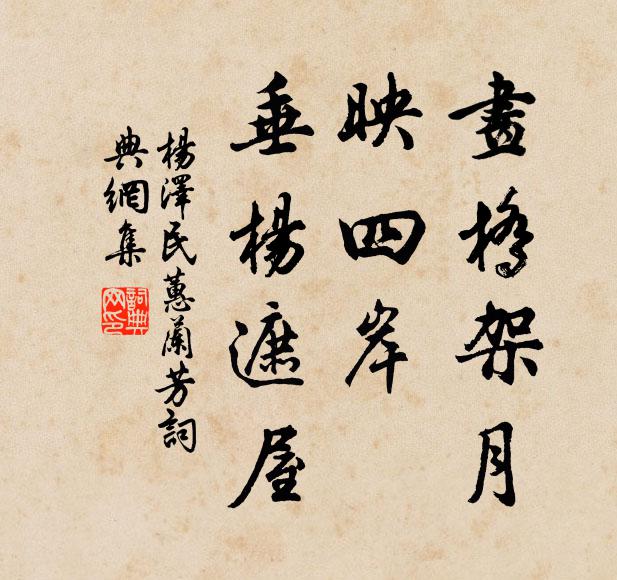 畫橋架月
映四岸
垂楊遮屋
楊澤民蕙蘭芳詞
典網集
詞典网印